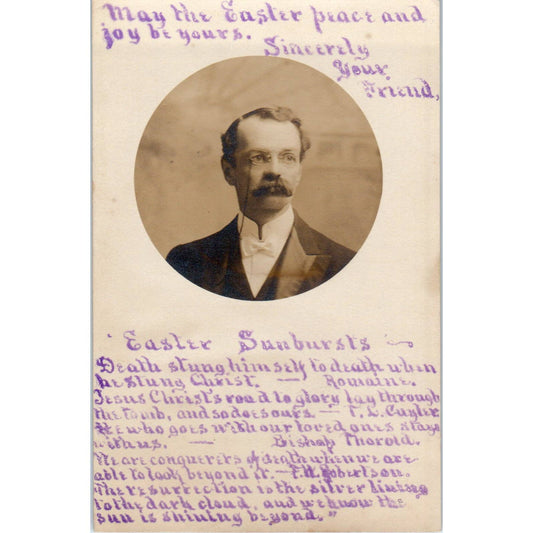 May the Easter peace and
joy be yours.
Sincerely
Your
Friend,
"Easter Sunbursts
Death stung himself to death when
he stung Christ. — Romaine.
Jesus Christ's road to glory lay through
the tomb, and so does ours — T. L. Cuyler
He who goes with our loved ones stays
with us. — Bishop Thorold.
We are conquerers of death when we are
able to look beyond it. — F. W. Robertson.
The resurrection is the silver lining
to the dark cloud, and we know the
sun is shining beyond."